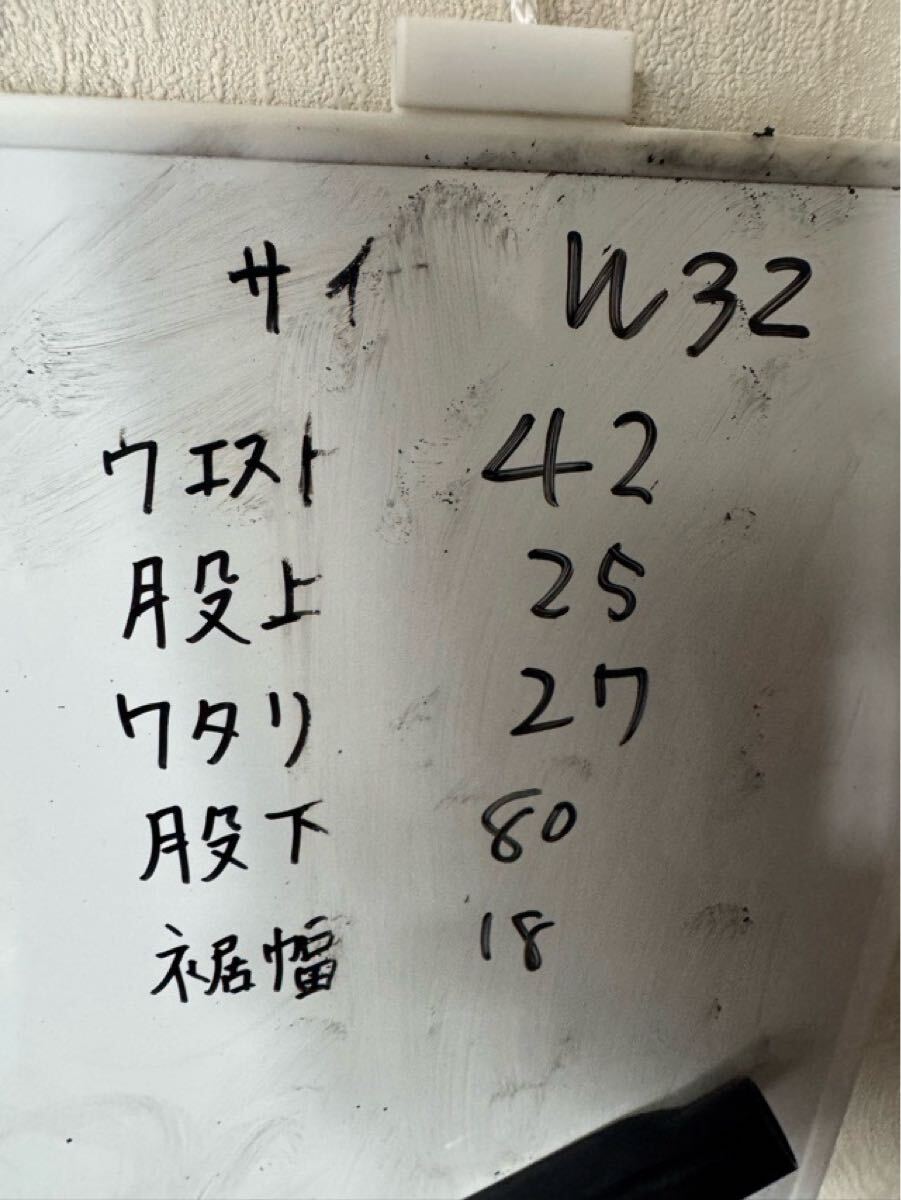 サイ W32
ウエスト 42
股上 25
ワタリ 27
股下 80
裾幅 18